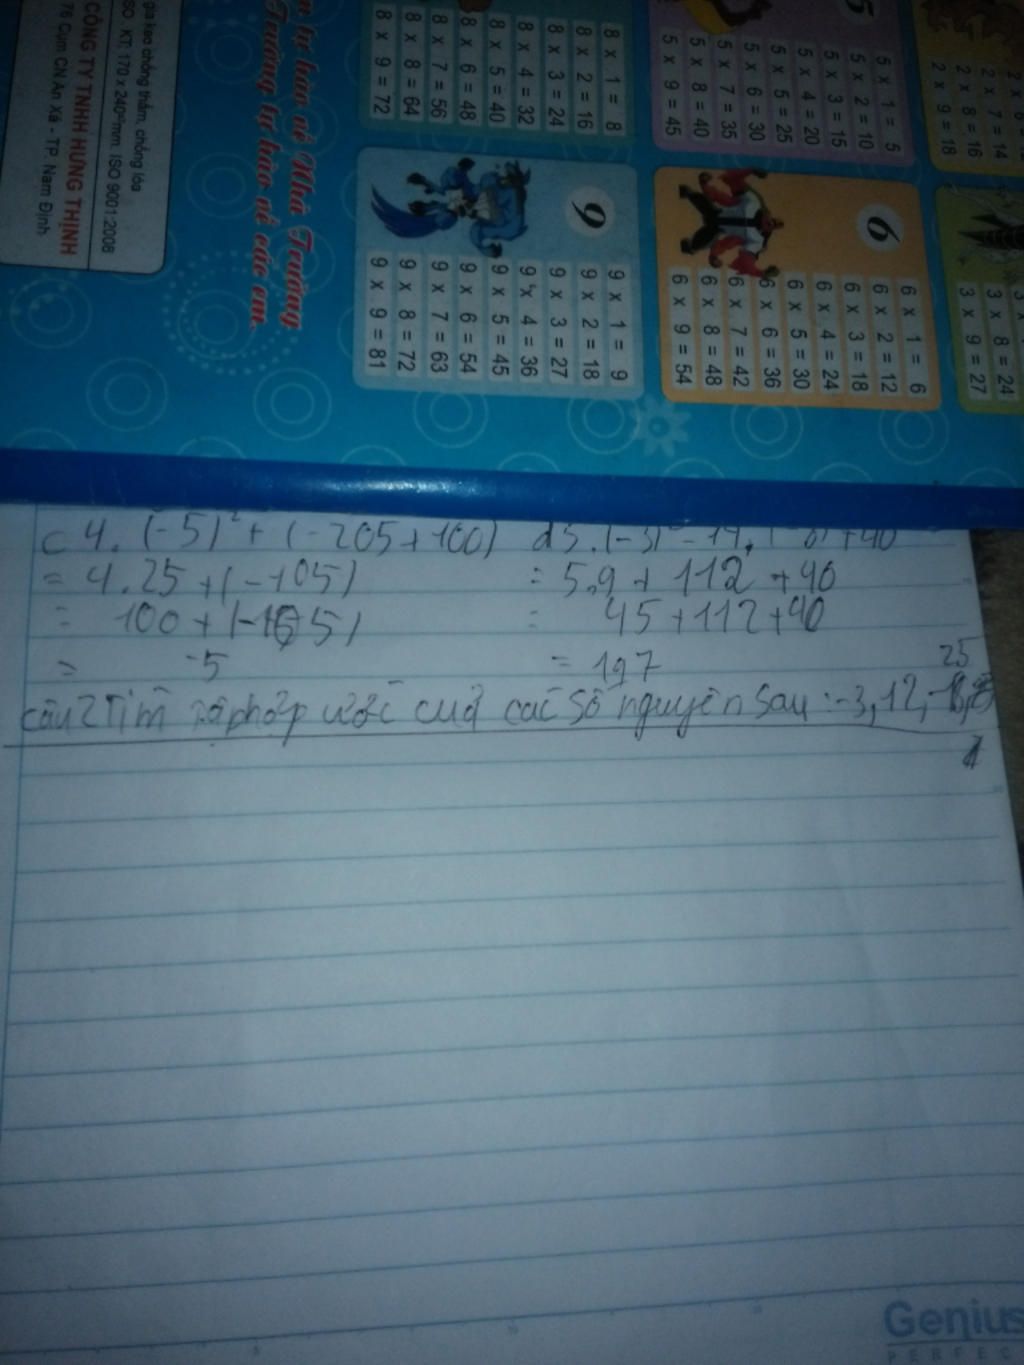 gia keo chống thấm, chống lóa
ISO 9001:2008
CÔNG TY TNHH HƯNG THỊNH
76 Cụm CN An Xá - TP. Nam Định
tự hào về Nhà Trường
Trường tự hào về các em.
8 x 1 = 8
8 x 2 = 16
8 x 3 = 24
8 x 4 = 32
8 x 5 = 40
8 x 6 = 48
8 x 7 = 56
8 x 8 = 64
8 x 9 = 72
5
5 x 1 = 5
5 x 2 = 10
5 x 3 = 15
5 x 4 = 20
5 x 5 = 25
5 x 6 = 30
5 x 7 = 35
5 x 8 = 40
5 x 9 = 45
2 x 7 = 14
2 x 8 = 16
2 x 9 = 18
9
9 x 1 = 9
9 x 2 = 18
9 x 3 = 27
9 x 4 = 36
9 x 5 = 45
9 x 6 = 54
9 x 7 = 63
9 x 8 = 72
9 x 9 = 81
6
6 x 1 = 6
6 x 2 = 12
6 x 3 = 18
6 x 4 = 24
6 x 5 = 30
6 x 6 = 36
6 x 7 = 42
6 x 8 = 48
6 x 9 = 54
3 x 8 = 24
3 x 9 = 27
c 4. (-5)² + (-205+100)
= 4.25 + (-105)
= 100 + (-105)
= -5
= 5.9 + 112 + 40
= 45 + 112 + 40
= 197
25
câu 2 Tìm ước của các số nguyên sau : -3, 12,
Genius
PERFEC